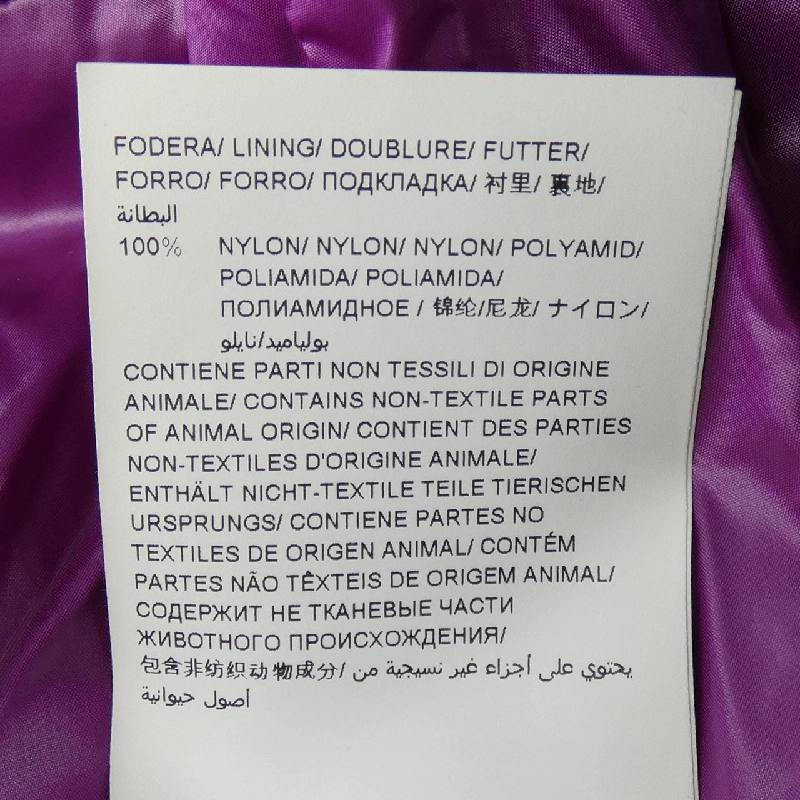 FODERA/ LINING/ DOUBLURE/ FUTTER/
FORRO/ FORRO/ ПОДКЛАДКА/ 衬里/ 裏地/
البطانة
100% NYLON/ NYLON/ NYLON/ POLYAMID/
POLIAMIDA/ POLIAMIDA/
ПОЛИАМИДНОЕ / 锦纶/尼龙/ ナイロン/
بولياميد/نايلو
CONTIENE PARTI NON TESSILI DI ORIGINE
ANIMALE/ CONTAINS NON-TEXTILE PARTS
OF ANIMAL ORIGIN/ CONTIENT DES PARTIES
NON-TEXTILES D'ORIGINE ANIMALE/
ENTHÄLT NICHT-TEXTILE TEILE TIERISCHEN
URSPRUNGS/ CONTIENE PARTES NO
TEXTILES DE ORIGEN ANIMAL/ CONTÉM
PARTES NÃO TÊXTEIS DE ORIGEM ANIMAL/
СОДЕРЖИТ НЕ ТКАНЕВЫЕ ЧАСТИ
ЖИВОТНОГО ПРОИСХОЖДЕНИЯ/
包含非纺织动物成分/ يحتوي على أجزاء غير نسيجية من
أصول حيوانية